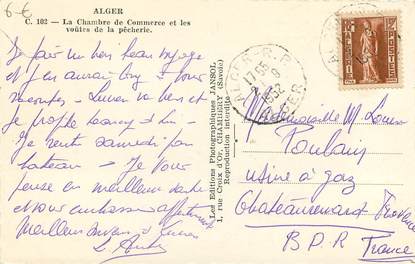 6€
ALGER
C. 102 - La Chambre de Commerce et les
voûtes de la pêcherie.
Je fais un bien beau voyage
et j'en aurai long à vous
raconter - Lucien va bien et
je profite beaucoup de lui -
Je rentre samedi par
bateau - Je vous
pense en meilleure santé
et vous embrasse affectueusement
Meilleurs baisers de Lucien
Les Editions Photographiques JANSOL
1, rue Croix d'Or, CHAMBERY (Savoie)
Reproduction interdite
ALGER-R.P.
17 55
9
1952
ALGER
Mademoiselle M. Louise
Poulain
usine à gaz
Chateaurenard Provence
B.D.R. France